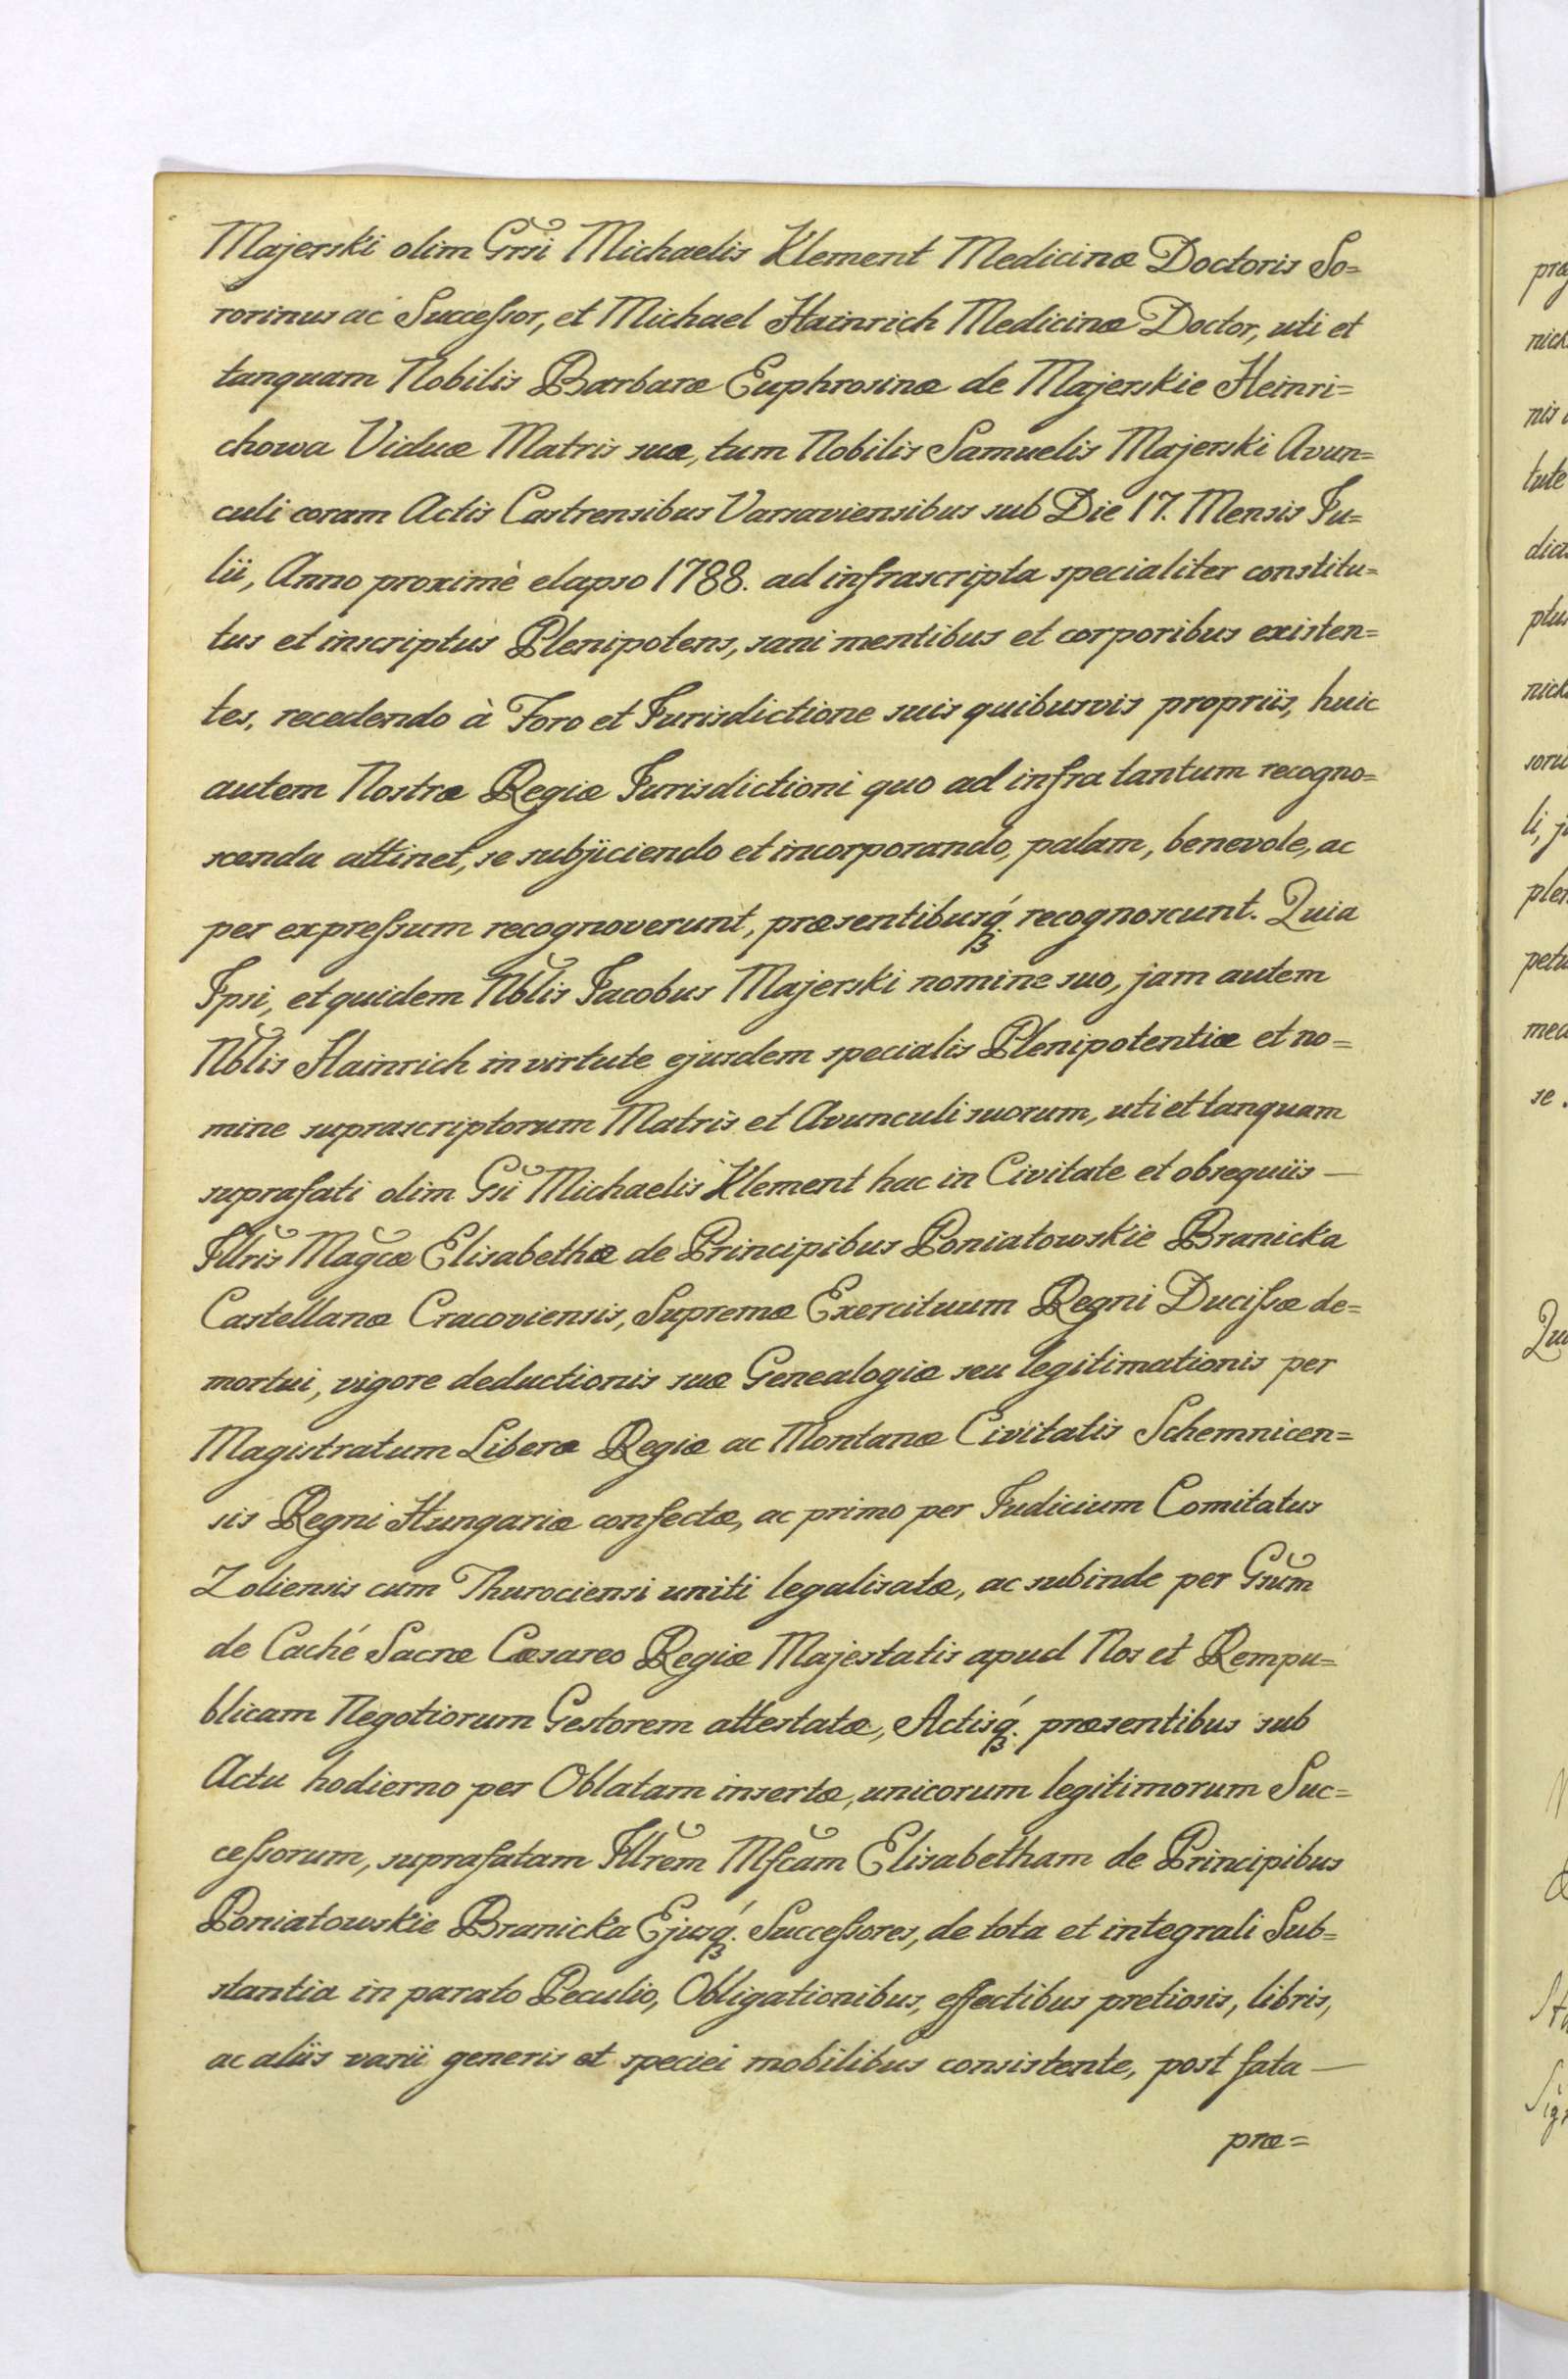 Majerski olim Grsi Michaelis Klement Medicinæ Doctoris So=
rorinus ac Successor, et Michael Hainrich Medicinæ Doctor, uti et
tanquam Nobilis Barbaræ Euphrosinæ de Majerskie Heinri=
chowa Viduæ Matris suæ, tum Nobilis Samuelis Majerski Avun=
culi coram Actis Castrensibus Varsaviensibus sub Die 17. Mensis Ju=
lii, Anno proximè elapso 1788. ad infrascripta specialiter constitu=
tus et inscriptus Plenipotens, sani mentibus et corporibus existen=
tes, recedendo à Foro et Jurisdictione suis quibusvis propriis, huic
autem Nostræ Regiæ Jurisdictioni quo ad infra tantum recogno=
scenda attinet, se subjiciendo et incorporando, palam, benevole, ac
per expressum recognoverunt, præsentibusq́. recognoscunt. Quia
Ipsi, et quidem Nblis Jacobus Majerski nomine suo, jam autem
Nblis Hainrich in virtute ejusdem specialis Plenipotentiæ et no=
mine suprascriptorum Matris et Avunculi suorum, uti et tanquam
suprafati olim Gsi Michaelis Klement hac in Civitate et obsequiis —
Illris Magcæ Elisabethæ de Principibus Poniatowskie Branicka
Castellanæ Cracoviensis, Supremæ Exercituum Regni Ducissæ de=
mortui, vigore deductionis suæ Genealogiæ seu legitimationis per
Magistratum Liberæ Regiæ ac Montanæ Civitatis Schemnicen=
sis Regni Hungariæ confectæ, ac primo per Judicium Comitatus
Zoliensis cum Thurociensi uniti legalisatæ, ac subinde per Gsum
de Caché Sacræ Cæsareo Regiæ Majestatis apud Nos et Rempu=
blicam Negotiorum Gestorem attestatæ, Actisq́. præsentibus sub
Actu hodierno per Oblatam insertæ, unicorum legitimorum Suc=
cessorum, suprafatam Illrem Mfcam Elisabetham de Principibus
Poniatowskie Branicka Ejusq́. Successores, de tota et integrali Sub=
stantia in parato Peculio, Obligationibus, effectibus pretiosis, libris,
ac aliis varii generis et speciei mobilibus consistente, post fata —
præ=